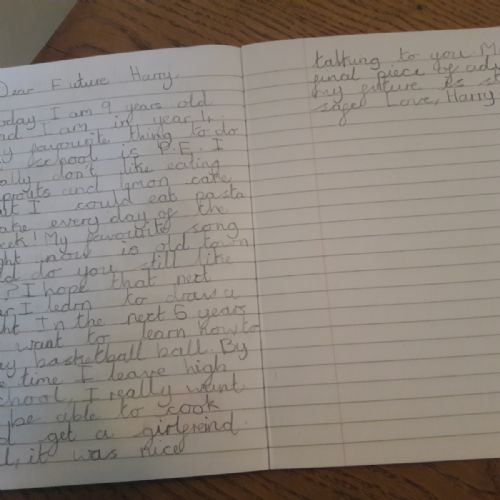 Dear Future Harry
today I am 9 years old
and I am in year 4
my favourite thing to do
school is P.E. I
really don't like eating
sprouts and lemon cake
but I could eat pasta
bake every day of the
week! My favourite song
right now is old town
road do you still like
? I hope that next
year I learn to draw a
In the next 5 years
want to learn how to
play basketball ball. By
the time I leave high
school, I really want
be able to cook
get a girlfreind
, it was nice
talking to you M
final piece of adv
my future is st
Love, Harry